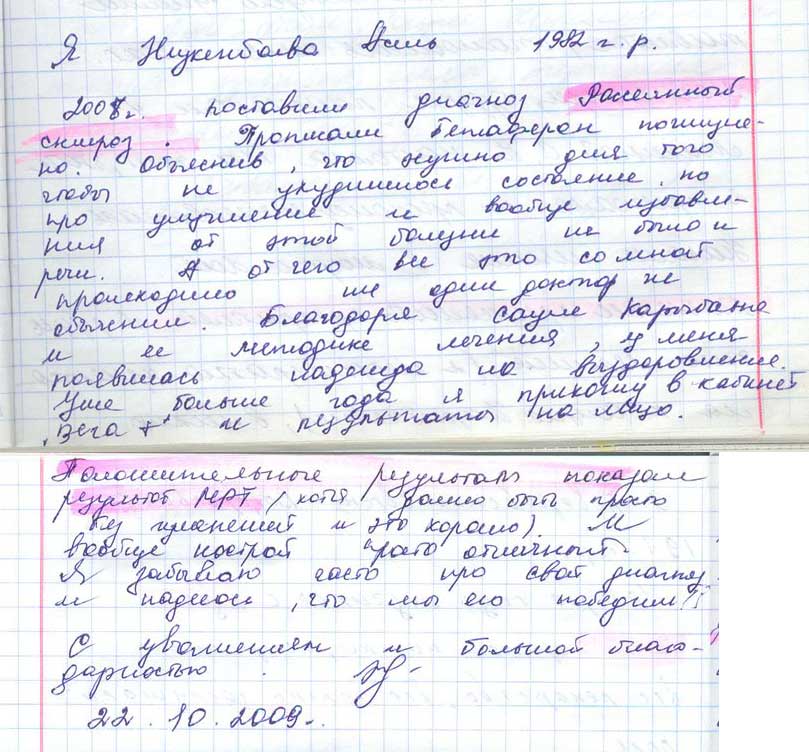 Я Нукенбаева Асель 1982 г. р.
2007г. поставили диагноз Рассеянный
склероз. Прописали Бетаферон пожизне-
но. Объяснив, что нужно для того
чтобы не ухудшилось состояние, но
про улучшение и вообще избавле-
ния от этой болезни не было и
речи. А от чего все это со мной
происходило ни один доктор не
объяснил. Благодаря Сауле Карыбаевне
и ее методике лечения, у меня
появилась надежда на выздоровление.
Уже больше года я прихожу в кабинет
"Вега +" и результаты на лицо.
Положительные результаты показал
результат МРТ (хотя должно быть просто
без изменений и это хорошо) И
вообще настрой просто отличный.
Я забываю часто про свой диагноз
и надеюсь, что мы его победим!
С уважением и большой благо-
дарностью.
22.10.2009г.